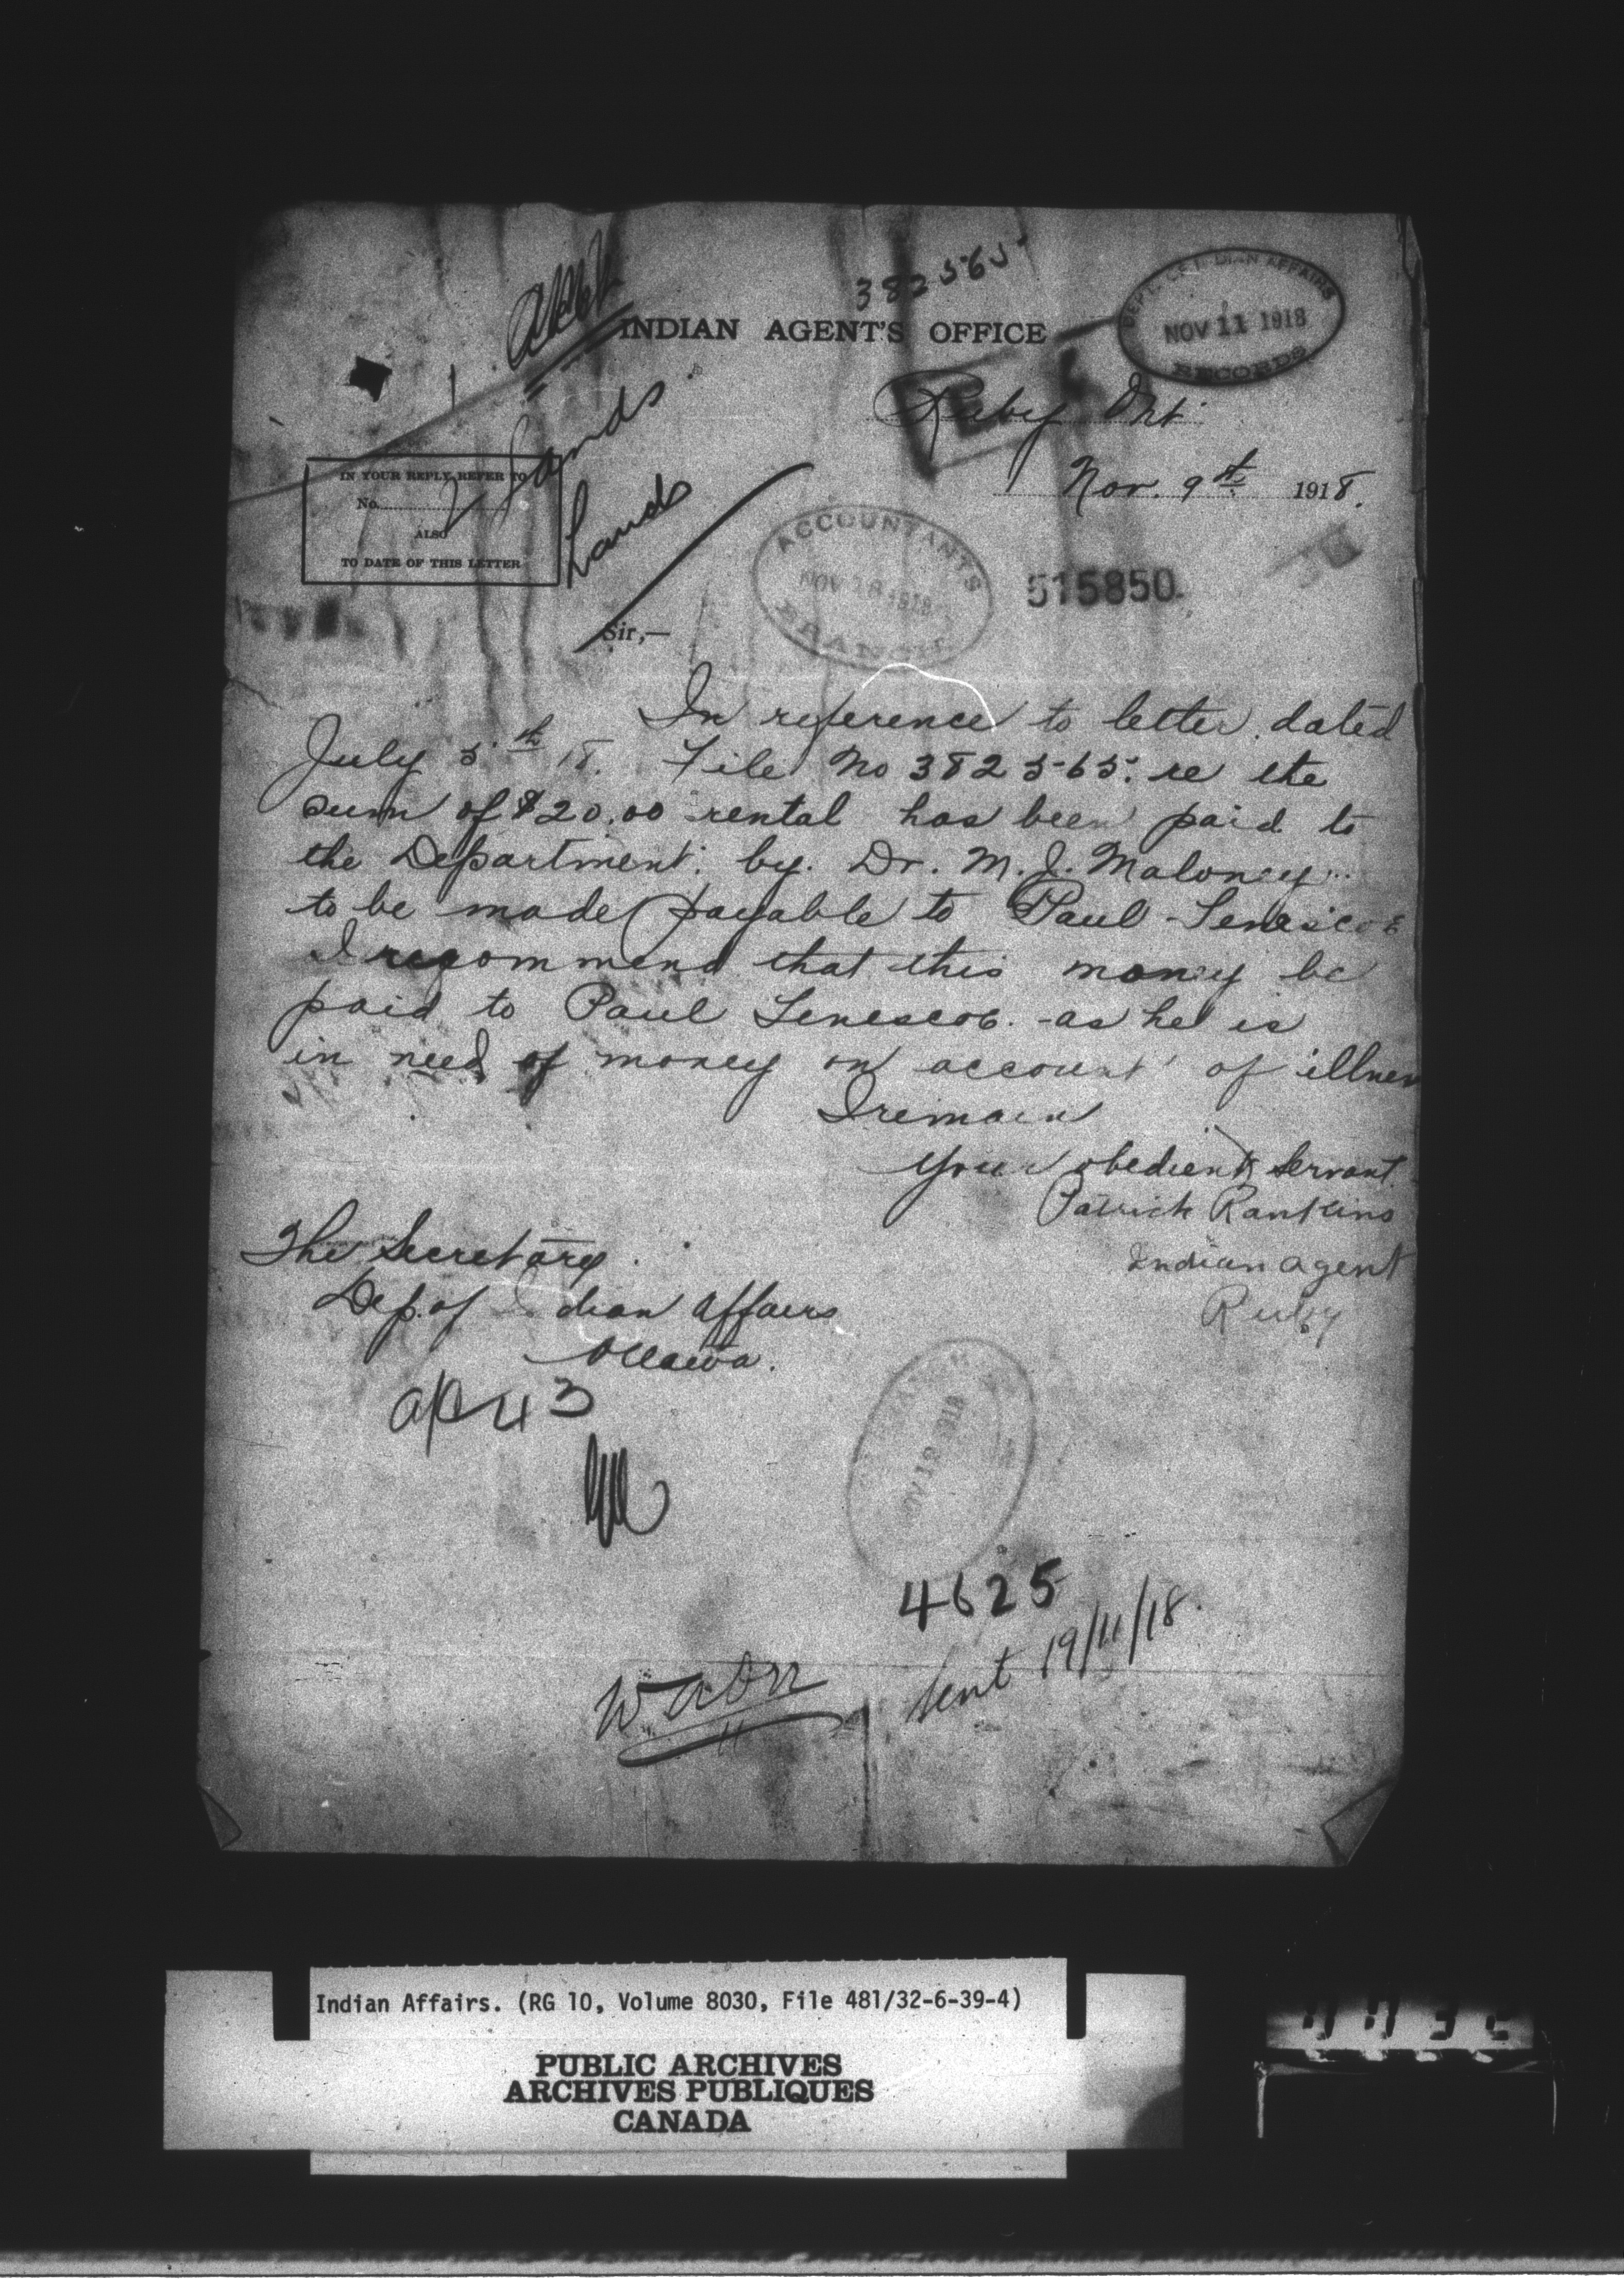 382565
INDIAN AGENT'S OFFICE
DEPT. OF INDIAN AFFAIRS
NOV 11 1918
RECORDS
Ruby Ont
Nov. 9th 1918.
IN YOUR REPLY REFER TO
No.
ALSO
TO DATE OF THIS LETTER
Lands
Lands
ACCOUNTANT'S
NOV 18 1918
BRANCH
515850
Sir,—
In reference to letter dated
July 5th 18. File No 382565. re the
sum of $20.00 rental has been paid to
the Department. by. Dr. M. J. Maloney
to be made payable to Paul
I recommend that this money be
paid to Paul Senescob. as he is
in need of money on account of illness
I remain
Your obedient Servant.
Patrick Rankins
Indian Agent
Ruby
The Secretary
Dep. of Indian Affairs
Ottawa.
43
NOV 18 1918
4625
Sent 19/11/18.
Indian Affairs. (RG 10, Volume 8030, File 481/32-6-39-4)
PUBLIC ARCHIVES
ARCHIVES PUBLIQUES
CANADA